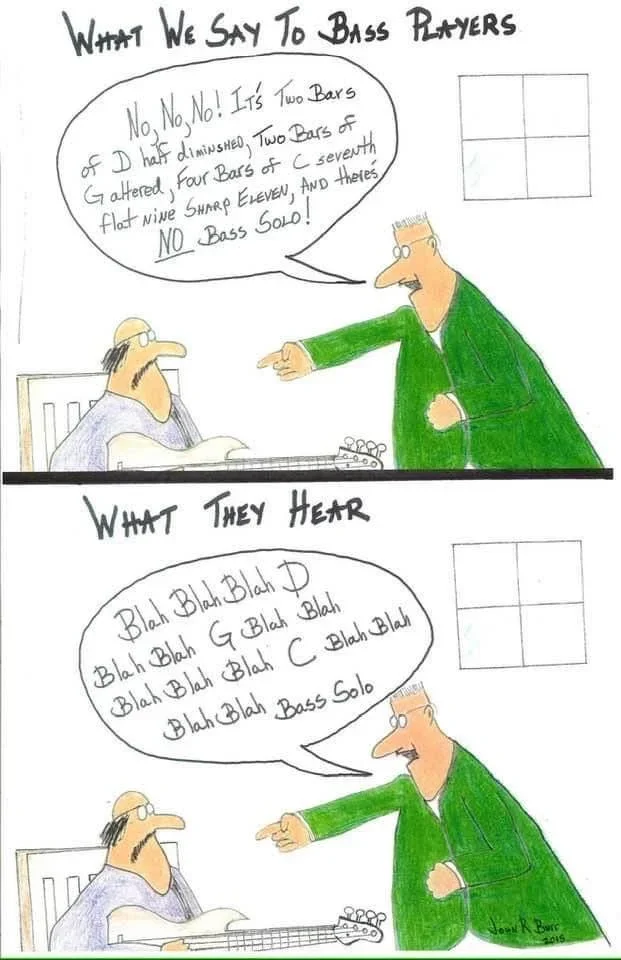 WHAT WE SAY TO BASS PLAYERS
No, No, No! IT'S Two Bars
of D half diminsHED, Two Bars of
G altered, Four Bars of C seventh
flat NINE SHARP ELEVEN, AND there's
NO Bass Solo!
WHAT THEY HEAR
Blah Blah Blah D
Blah Blah G Blah Blah
Blah Blah Blah C Blah Blah
Blah Blah Bass Solo
John R Burr
2015